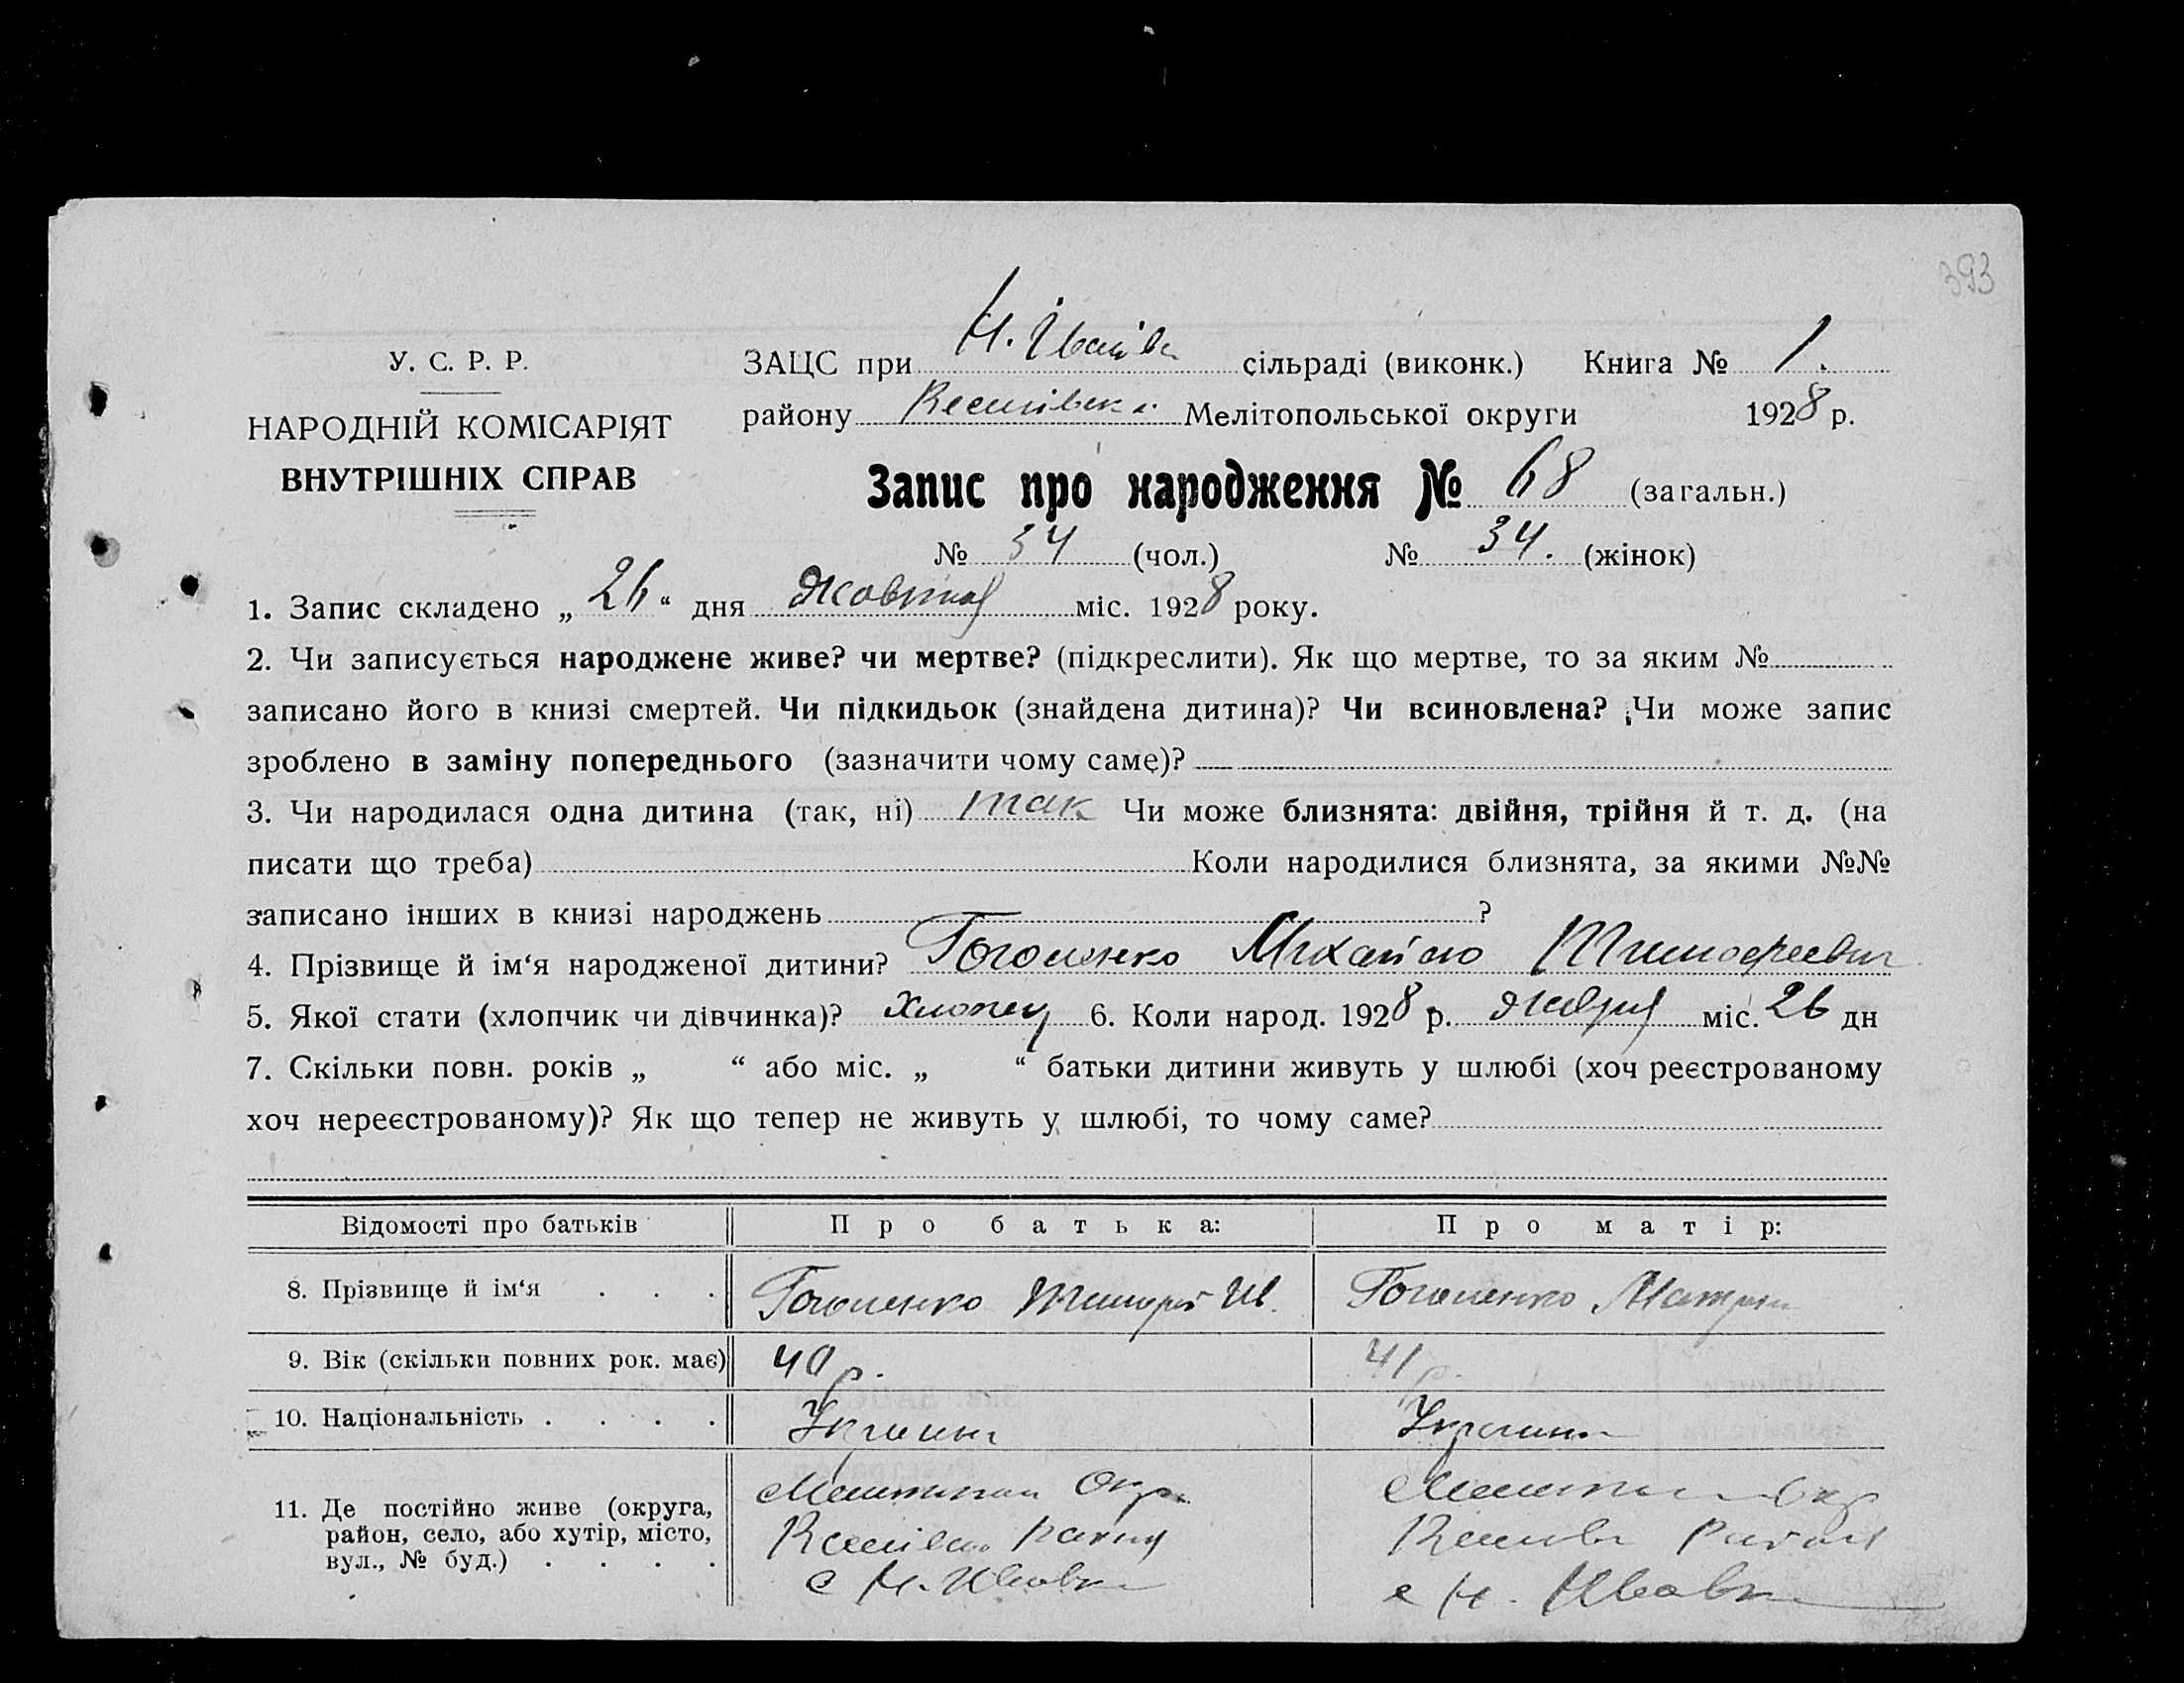 393
У. С. Р. Р.
НАРОДНІЙ КОМІСАРІЯТ
ВНУТРІШНІХ СПРАВ
ЗАЦС при Н. сільраді (виконк.) Книга № 1.
району Мелітопольської округи 1928 р.
Запис про народження № 68 (загальн.)
№ 34 (чол.) № 34. (жінок)
1. Запис складено „ 26 “ дня Жовтня міс. 1928 року.
2. Чи записується народжене живе? чи мертве? (підкреслити). Як що мертве, то за яким №
записано його в книзі смертей. Чи підкидьок (знайдена дитина)? Чи всиновлена? Чи може запис
зроблено в заміну попереднього (зазначити чому саме)?
3. Чи народилася одна дитина (так, ні) так Чи може близнята: двійня, трійня й т. д. (на
писати що треба) Коли народилися близнята, за якими №№
записано інших в книзі народжень ?
4. Прізвище й ім‘я народженої дитини? Михайло
5. Якої стати (хлопчик чи дівчинка)? Хлопец 6. Коли народ. 1928 р. міс. 26 дн
7. Скільки повн. років „ “ або міс. „ “ батьки дитини живуть у шлюбі (хоч реєстрованому
хоч нереєстрованому)? Як що тепер не живуть у шлюбі, то чому саме?
Відомості про батьків Про батька: Про матір:
8. Прізвище й ім‘я . . .
9. Вік (скільки повних рок. має) 40 р. 41 р.
10. Національність . . . .
11. Де постійно живе (округа,
район, село, або хутір, місто,
вул., № буд.) . . . .